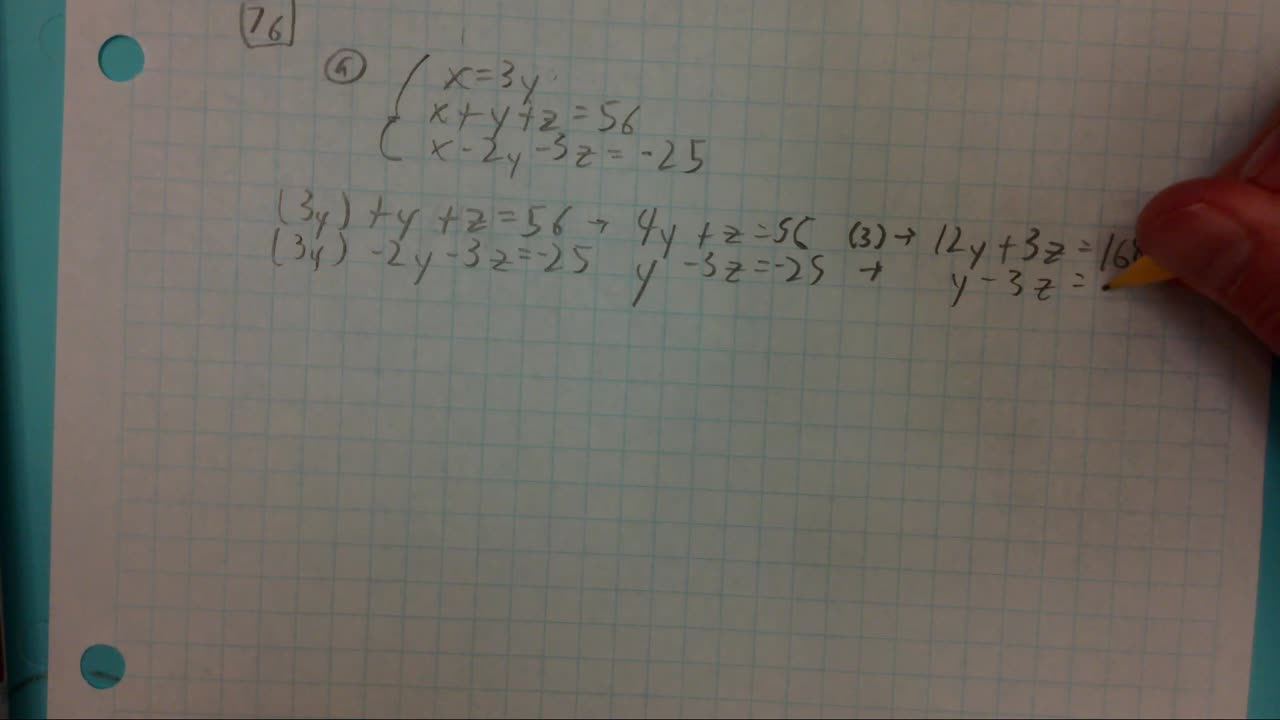 76
a x=3y
x+y+z=56
x-2y-3z=-25
(3y)+y+z=56 → 4y+z=56 (3)→ 12y+3z=168
(3y)-2y-3z=-25 y-3z=-25 → y-3z=